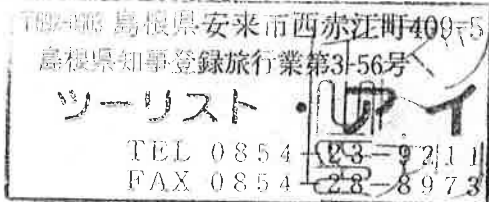 島根県安来市西赤江町409-5
島根県知事登録旅行業第3-56号
ツーリスト・アイ
TEL 0854-23-9211
FAX 0854-28-8973